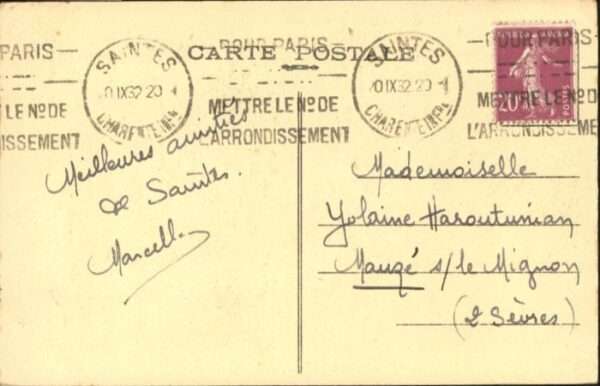 CARTE POSTALE
PARIS
LE No DE
DISSEMENT
SAINTES
IX32 20
CHARENTE INFRE
POUR PARIS
METTRE LE No DE
L'ARRONDISSEMENT
SAINTES
IX32 20
CHARENTE INFRE
POUR PARIS
METTRE LE No DE
L'ARRONDISSEME
20
POSTES
Meilleures amitiés
de Saintes.
Marcelle
Mademoiselle
Yolaine Haroutunian
Mauzé s/le Mignon
(2 Sèvres)